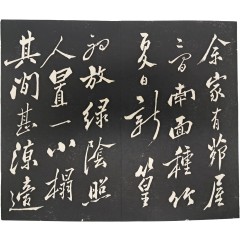 余家有茆屋
二間南面種竹
夏日新篁
初放綠陰照
人置一小榻
其間甚涼適